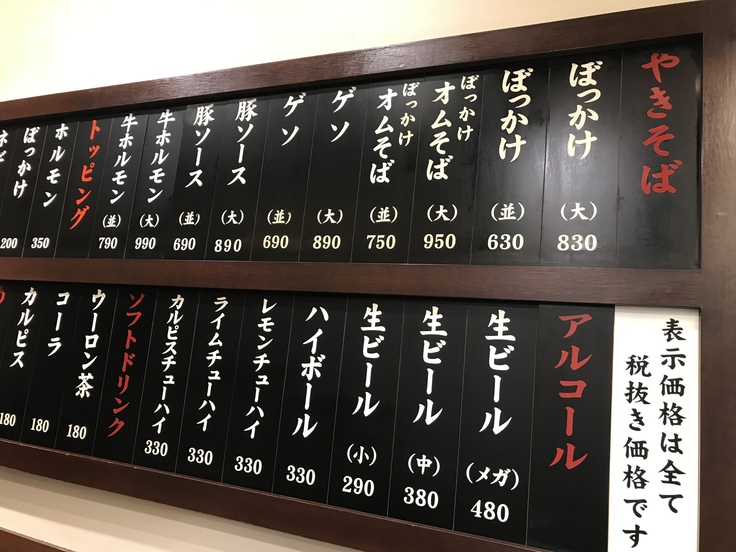 やきそば
ぼっかけ
(大)
830
ぼっかけ
(並)
630
ぼっかけ
オムそば
(大)
950
ぼっかけ
オムそば
(並)
750
ゲソ
(大)
890
ゲソ
(並)
690
豚ソース
(大)
890
豚ソース
(並)
690
牛ホルモン
(大)
990
牛ホルモン
(並)
790
トッピング
ホルモン
350
ぼっかけ
200
表示価格は全て
税抜き価格です
アルコール
生ビール
(メガ)
480
生ビール
(中)
380
生ビール
(小)
290
ハイボール
330
レモンチューハイ
330
ライムチューハイ
330
カルピスチューハイ
330
ソフトドリンク
ウーロン茶
180
コーラ
180
カルピス
180